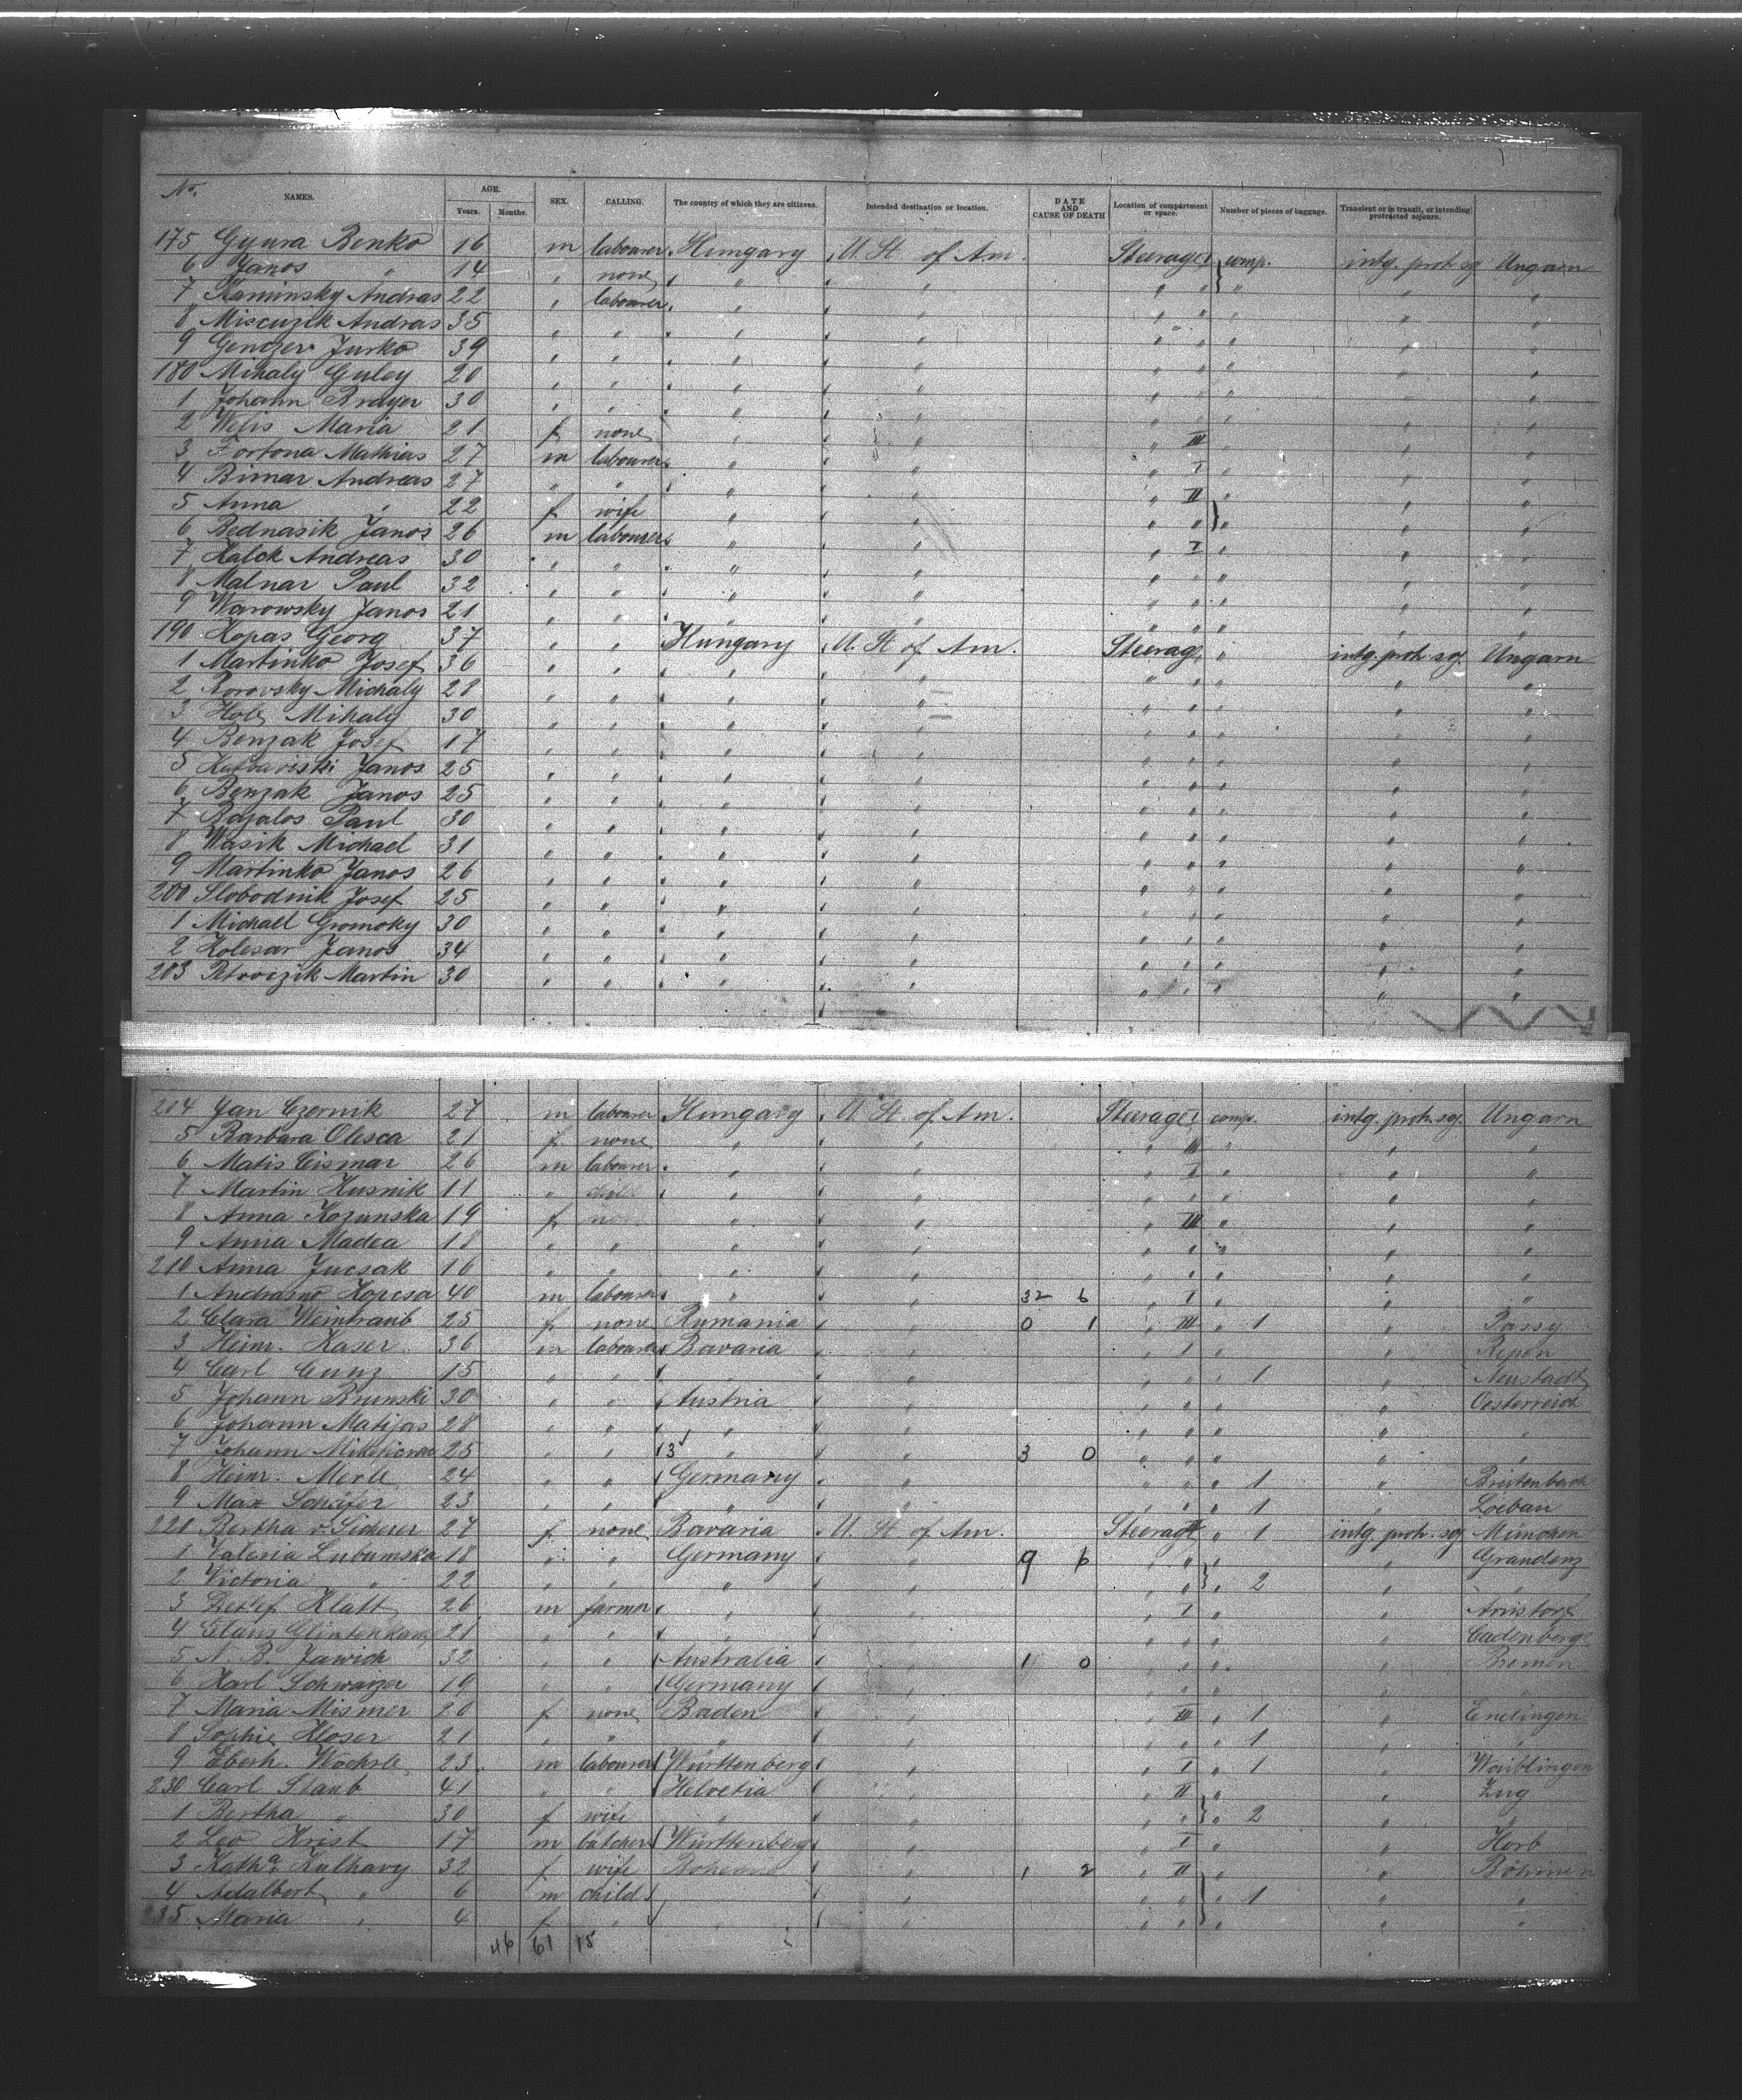 No. NAMES. AGE. Years. Months. SEX. CALLING. The country of which they are citizens. Intended destination or location. DATE AND CAUSE OF DEATH Location of compartment or space. Number of pieces of baggage. Transient or in transit, or intending protracted sojourn.
175 Gyura Benko 16 m labourer Hungary U. St. of Am. Steerage I comp. intg. prot. soj Ungarn
6 Janos " 14 " none " " " " " " "
7 Kaminsky Andras 22 " labourer " " " " " " "
8 Miscuzik Andras 35 " " " " " " " " "
9 Genczer Jurko 39 " " " " " " " " "
180 Mihaly Guley 20 " " " " " " " " "
1 Johann Breyer 30 " " " " " " " " "
2 Maria 21 f none " " " III " " "
3 Fortona Mathias 27 m labourer " " " I " " "
4 Bimar Andreas 27 " " " " " II " " "
5 Anna " 22 f wife " " " " " " "
6 Bednasik Janos 26 m labourer " " " I " " "
7 Kalck Andreas 30 " " " " " " " " "
8 Malnar Paul 32 " " " " " " " " "
9 Warowsky Janos 21 " " " " " " " " "
190 Kopas Georg 37 " " Hungary U. St. of Am. Steerage " intg. prot. soj. Ungarn
1 Martinko Josef 36 " " " " " " " " "
2 Borovsky Michaly 28 " " " " " " " " "
3 Mihaly 30 " " " " " " " " "
4 Benzak Josef 17 " " " " " " " " "
5 Janos 25 " " " " " " " " "
6 Benzak Janos 25 " " " " " " " " "
7 Paul 30 " " " " " " " " "
8 Wasik Michael 31 " " " " " " " " "
9 Martinko Janos 26 " " " " " " " " "
200 Slobodnik Josef 25 " " " " " " " " "
1 Michael Gromoky 30 " " " " " " " " "
2 Kolesar Janos 34 " " " " " " " " "
203 Petrovczik Martin 30 " " " " " " " " "
204 Jan Czernik 27 m labourer Hungary U. St. of Am. Steerage I comp. intg. prot. soj. Ungarn
5 Barbara Olesca 21 f none " " " III " " "
6 Matis Cismar 26 m labourer " " " I " " "
7 Martin Kusnik 11 " child " " " " " " "
8 Anna Kozunska 19 f none " " " III " " "
9 Anna Madea 18 " " " " " " " " "
210 Anna Jucsak 16 " " " " " " " " "
1 Kopcsa 40 m labourer " " 32 6 " I " " "
2 Clara Weintraub 25 f none Rumania " 0 1 " III " 1 "
3 Heinr. Kaser 36 m labourer Bavaria " " I " "
4 Carl Cunz 15 " " " " " " " 1 " Neustadt
5 Johann Brunski 30 " " Austria " " " " " Oesterreich
6 Johann Matijas 28 " " " " " " " " "
7 Johann 25 " " 3 " " 3 0 " " " " "
8 Heinr. Merle 24 " " Germany " " " " 1 " Breitenbach
9 Max Schäfer 23 " " " " " " " 1 " Loebau
220 Bertha v. Sicherer 27 f none Bavaria U. St. of Am. Steerage II " 1 intg. prot. soj München
1 Valeria Lubumska 18 " " Germany " 9 6 " " " " Graudenz
2 Victoria " 22 " " " " " " " 2 " "
3 Detlef Klatt 26 m farmer " " " I " "
4 Claus 21 " " " " " " " " Cadenberge
5 N. B. Jawich 32 " " Australia " 1 0 " " " " Bremen
6 Karl Schwarzer 19 " " Germany " " " " " "
7 Maria Mismer 20 f none Baden " " III " 1 " Endingen
8 Sophie Kloser 21 " " " " " " " 1 " "
9 Eberh. 23 m labourer Württenberg " " I " 1 " Waiblingen
230 Carl Staub 41 " " Helvetia " " II " " Zug
1 Bertha " 30 f wife " " " " " 2 " "
2 Leo Krist 17 m butcher Württenberg " " I " " Horb
3 Katha. Kulhavy 32 f wife Bohemia " 1 2 " II " " Böhmen
4 Adalbert " 6 m child " " " " " 1 " "
235 Maria " 4 f " " " " " " " "
46 61 15